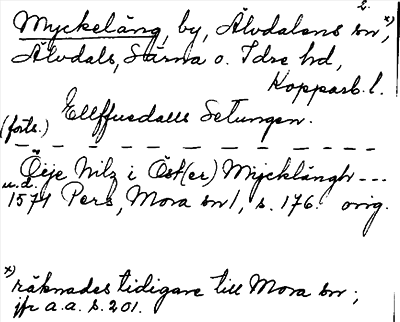 2.
Myckeläng, by, Älvdalens sn,*)
Älvdals, Särna o. Idre hd,
Kopparb. l.
(forts.) Ellffuedalls Setungen.
Öije Nilz i Öst(er) Mÿcklängh ---
u.d.
1571 Pers, Mora sn 1, s. 176. orig.
*) räknades tidigare till Mora sn;
jfr a.a. s. 201.